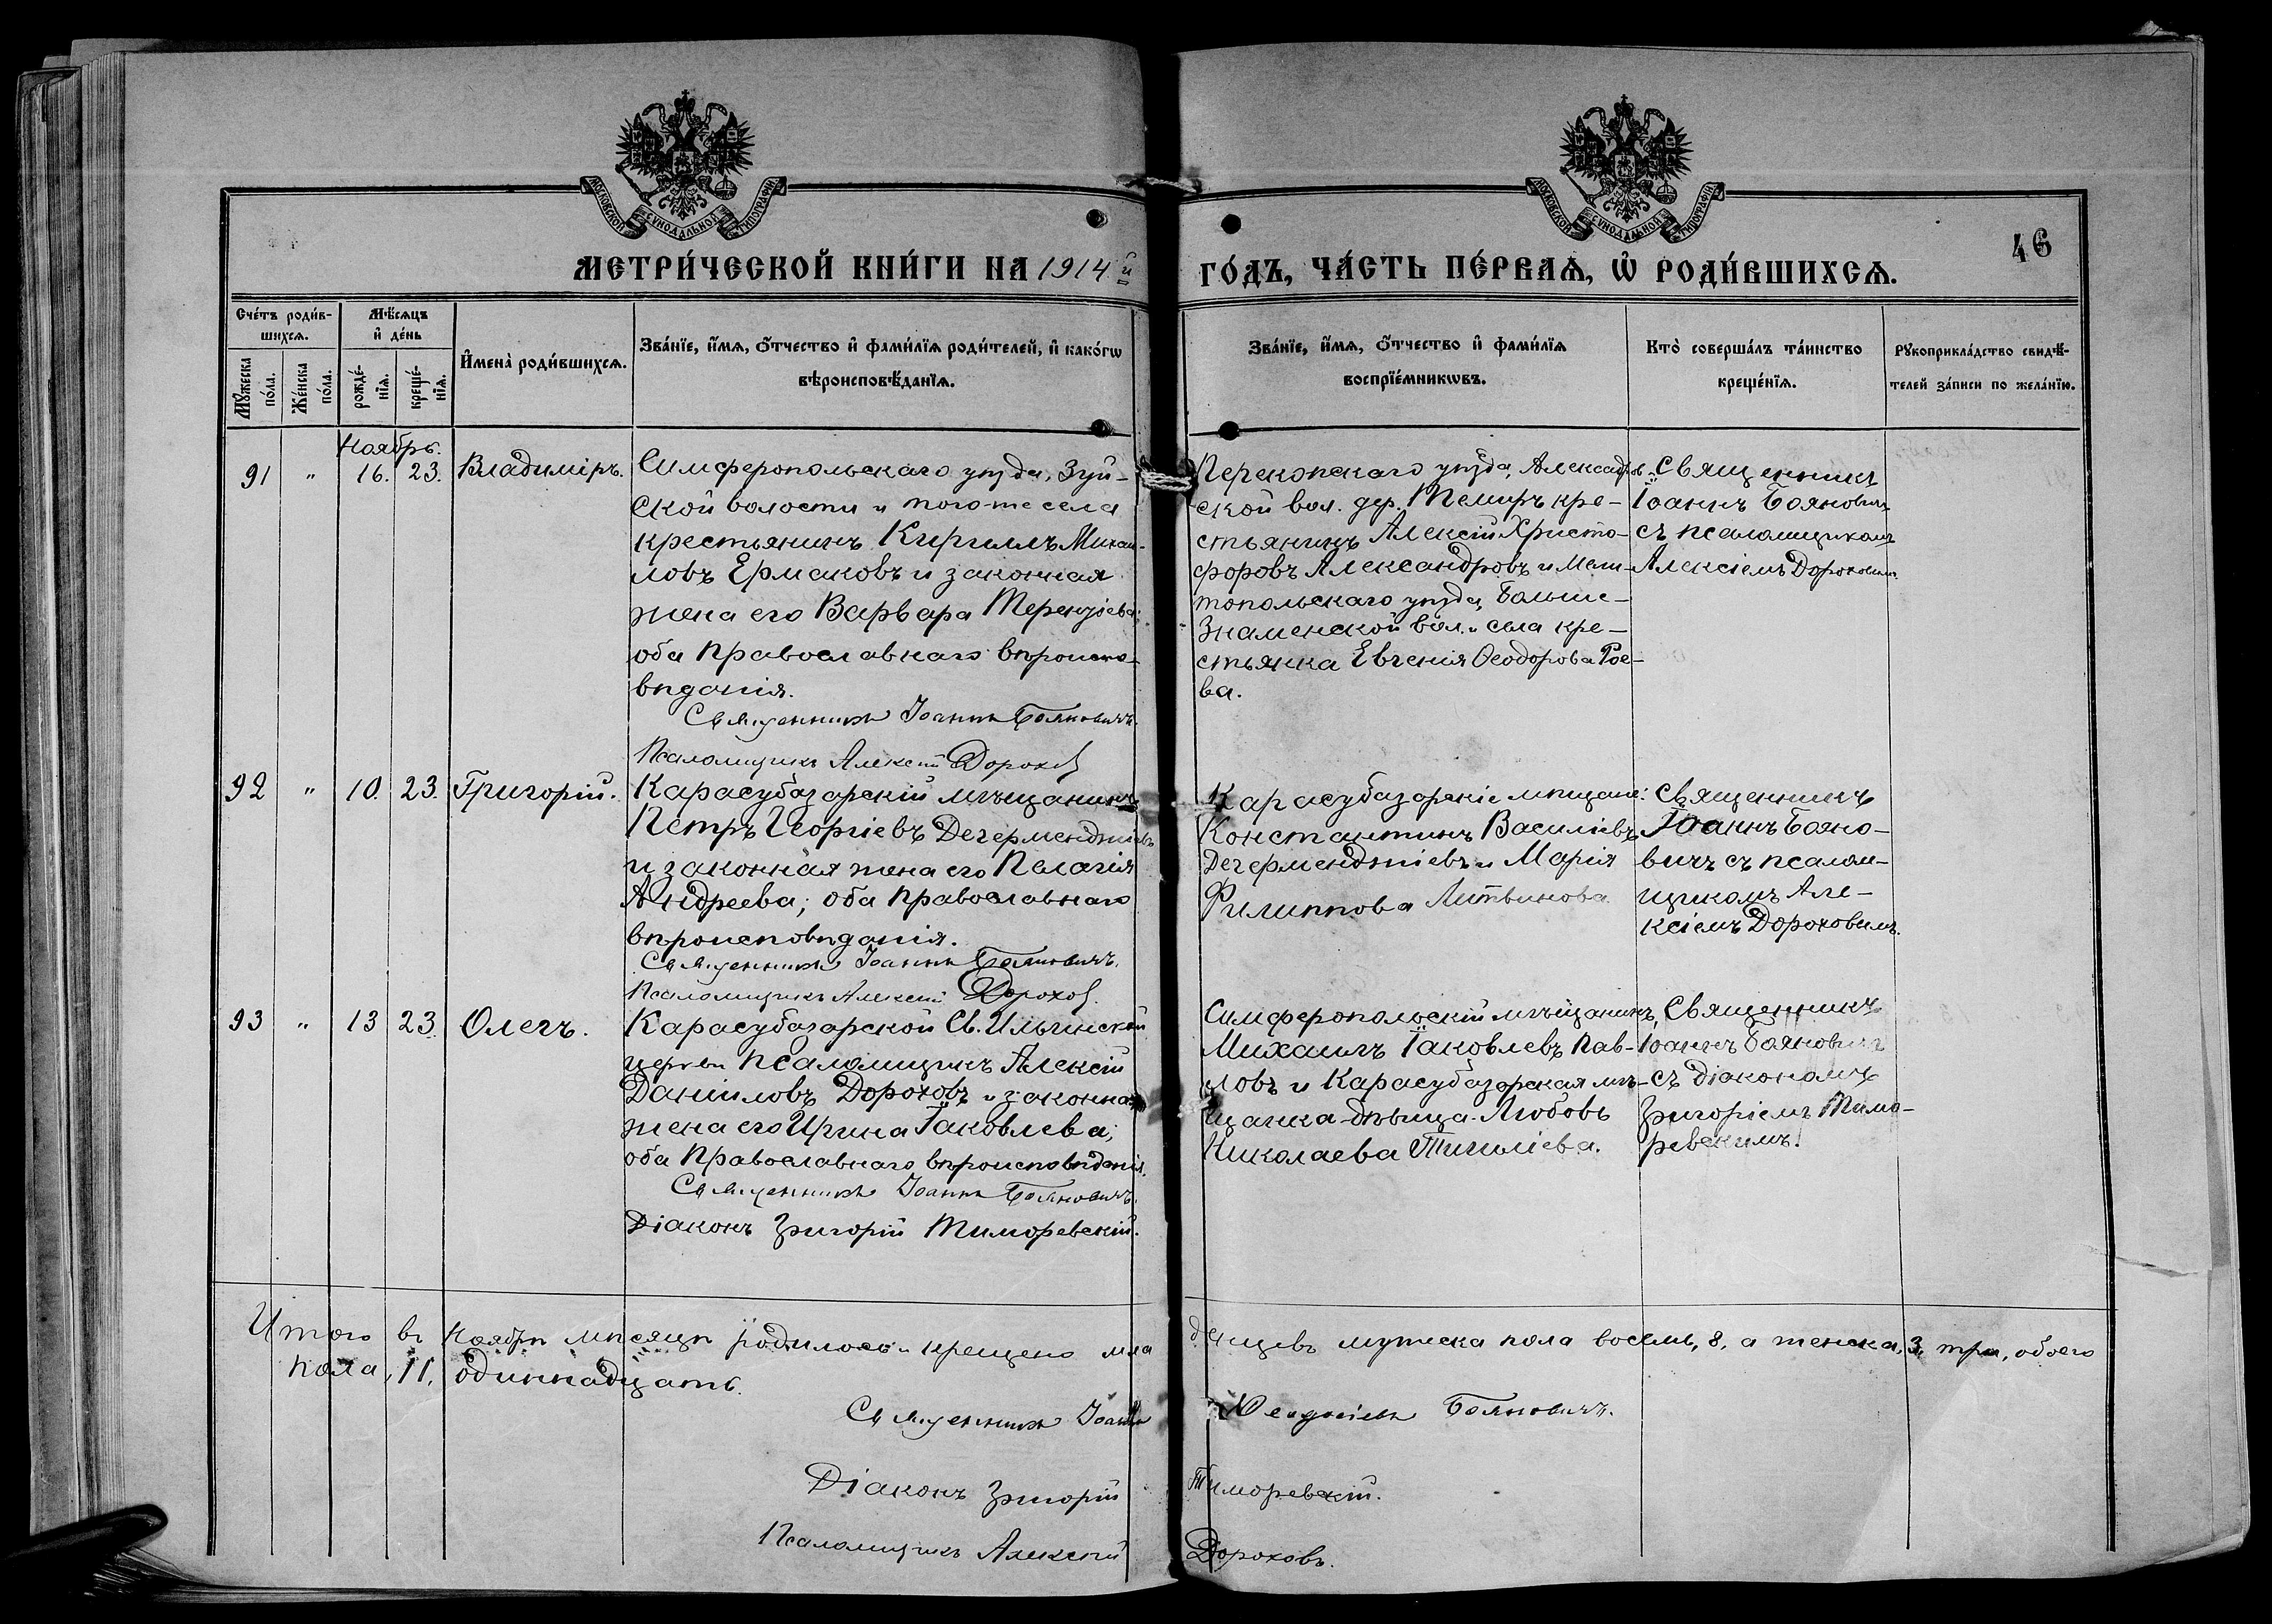 МОСКОВСКОЙ СѴНОДАЛЬНОЙ ТИПОГРАФІИ
МОСКОВСКОЙ СѴНОДАЛЬНОЙ ТИПОГРАФІИ
46
МЕТРИ́ЧЕСКОЙ КНИ́ГИ НА 1914й
ГО́ДЪ, ЧА́СТЬ ПЕ́РВАѦ, Ѡ҆ РОДИ́ВШИХСѦ.
Сче́тъ роди́в-
шихсѧ.
Мꙋ́жеска по́ла.
Же́нска по́ла.
Мѣ́сѧцъ
и҆ де́нь
рожде́-
нїѧ.
креще́-
нїѧ.
И҆мена̀ роди́вшихсѧ.
Зва́нїе, и҆́мѧ, ѻ҆́тчество и҆ фами́лїѧ роди́телей, и҆ како́гѡ
вѣроисповѣ́данїѧ.
Зва́нїе, и҆́мѧ, ѻ҆́тчество и҆ фами́лїѧ
воспрїе́мникѡвъ.
Кто̀ соверша́лъ та́инство
креще́нїѧ.
Рꙋкоприкла́дство свидѣ́-
телей за́писи по жела́нїю.
Ноябрь.
91 " 16. 23. Владиміръ.
Симферопольскаго уѣзда, Зуй-
ской волости и того-же села
крестьянинъ Кириллъ Михаи-
ловъ Ермаковъ и законная
жена его Варвара Терентіева;
оба православнаго вѣроиспо-
вѣданія.
Священникъ Іоаннъ Бояновичъ.
Псаломщикъ Алексій Дорохов
Перекопскаго уѣзда, Александров-
ской вол. дер. Темиръ кре-
стьянинъ Алексій Христо-
форовъ Александровъ и Мели-
топольскаго уѣзда, Больше-
Знаменской вол. и села кре-
стьянка Евгенія Ѳеодорова Рое-
ва.
Священникъ
Іоаннъ Бояновичъ
съ псаломщикомъ
Алексіемъ Дороховымъ.
92 " 10. 23. Григорій.
Карасубазарскій мѣщанинъ
Петръ Георгіевъ Дегерменджіевъ
и законная жена его Пелагія
Андреева; оба православнаго
вѣроисповѣданія.
Священникъ Іоаннъ Бояновичъ.
Псаломщикъ Алексій Дорохов.
Карасубазарскіе мѣщане:
Константинъ Василіевъ
Дегерменджіевъ и Марія
Филиппова Литвинова
Священникъ
Іоаннъ Бояно-
вичъ съ псалом-
щикомъ Але-
ксіемъ Дороховымъ.
93 " 13 23. Олегъ.
Карасубазарской Св. Ильинской
церкви псаломщикъ Алексій
Даніиловъ Дороховъ и законная
жена его Ирина Іаковлева;
оба Православнаго вѣроисповѣданія.
Священникъ Іоаннъ Бояновичъ.
Діаконъ Григорій Тиморевскій.
Симферопольскій мѣщанинъ,
Михаилъ Іаковлевъ Пав-
ловъ и Карасубазарская мѣ-
щанка-дѣвица Любовь
Николаева
Священникъ
Іоаннъ Бояновичъ
съ діакономъ
Григоріемъ Тимо-
ревскимъ.
Итого въ Ноябрѣ мѣсяцѣ родилось и крещено мла
денцевъ мужеска пола восемь, 8, а женска, 3, три, обоего
пола, 11, одиннадцать.
Священникъ Іоаннъ
Бояновичъ.
Діаконъ Григорій
Тиморевскій.
Псаломщикъ Алексій
Дороховъ.